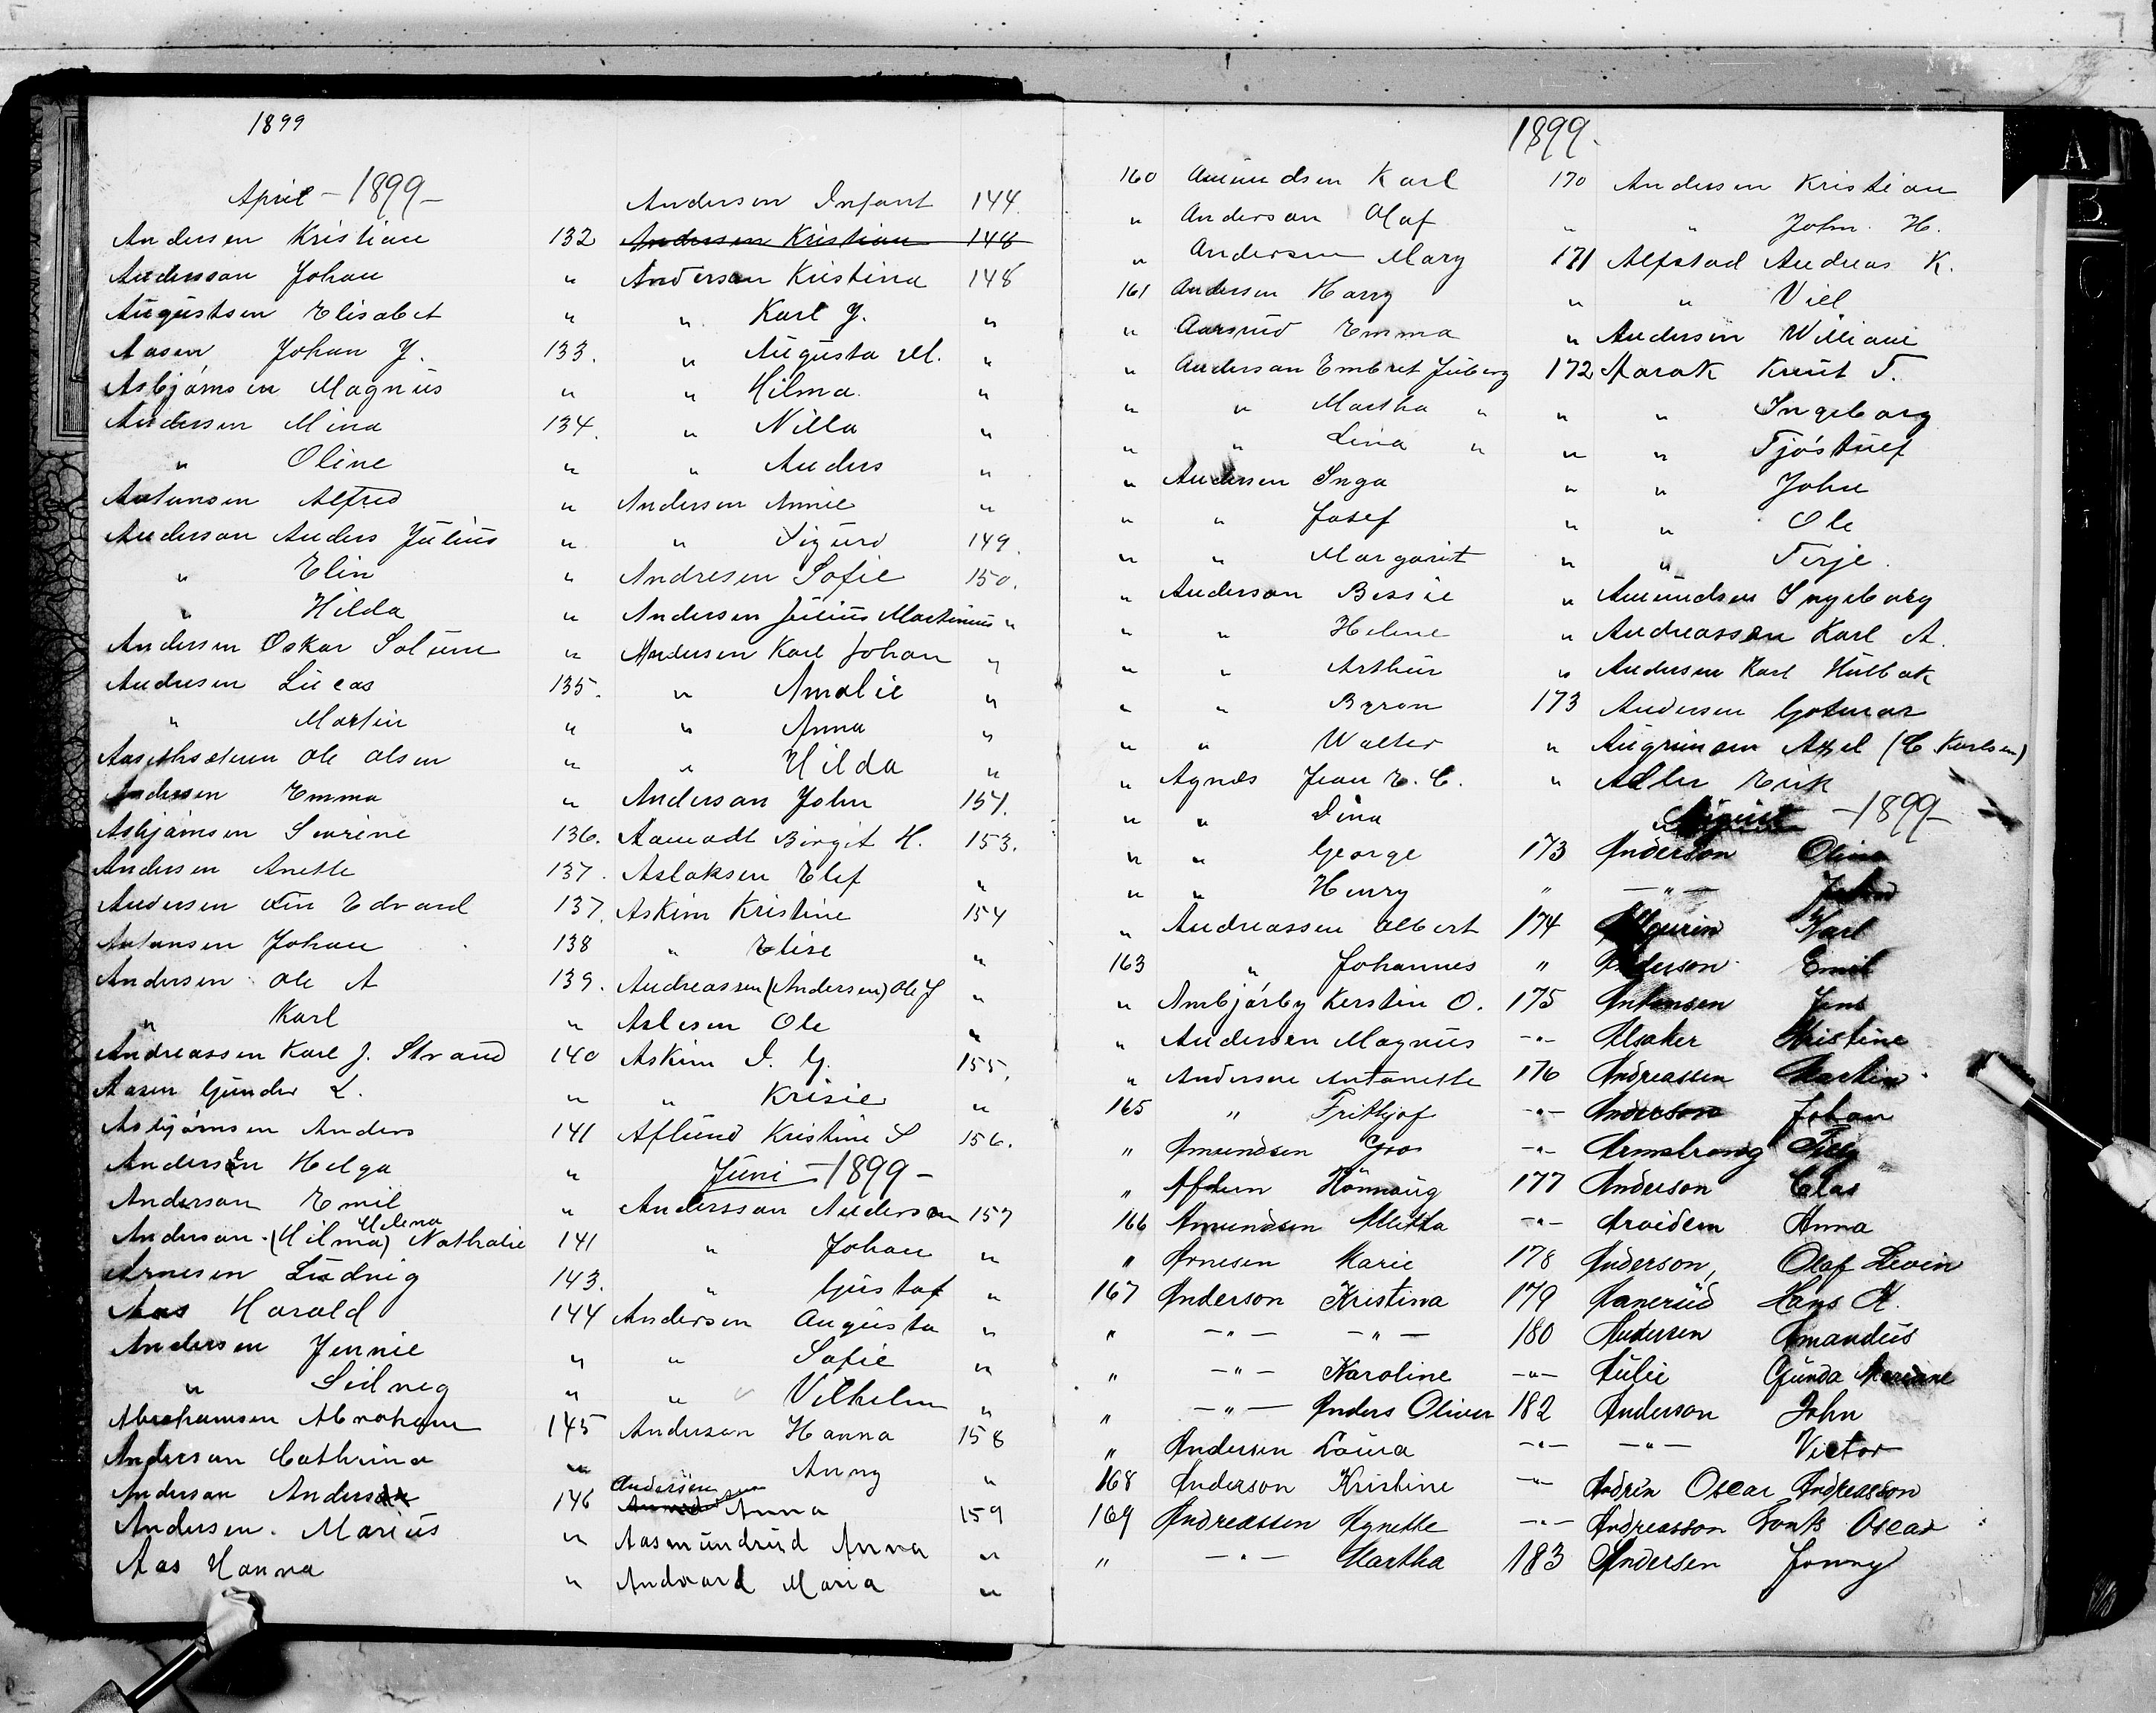 1899
April - 1899 -
Andersen Kristian 132
Andersson Johan "
Augustsen Elisabet "
Aasen Johan J. 133.
Asbjörnsen Magnus "
Andersen Mina 134.
" Oline "
Antonsen Alfred "
Anderson Anders Julius "
" Elin "
" Hilda "
Andersen Oskar Solum "
Andresen Lucas 135.
" Martin "
Ole Olsen "
Andersen Emma "
Asbjörnsen Severine 136.
Andersen Anette 137.
Andersen Edvard 137.
Antonsen Johan 138
Andersen Ole A 139.
" Karl "
Andreassen Karl J. Strand 140
Aasen Gunder L. "
Asbjörnsen Anders 141
Andersen Helga "
Anderson Emil "
Helena
Anderson (Hilma) Nathalie 141
Arnesen Ludvig 143.
Aas Harald 144
Andersen Jennie "
" "
Abrahamsen Abraham 145
Anderson Cathrina "
Anderson Anders 146
Andersen Marius "
Aas Hanna "
Anderson Infant 144
Andersen Kristian 148
Anderson Kristina 148
" Karl J. "
" Augusta M. "
" Hilma "
" Nilla "
" Anders "
Andersen Annie "
" Sigurd 149.
Andresen Sofie 150.
Andersen Julius Martinius "
Andersen Karl Johan "
" Amalie "
" Anna "
" Hilda "
Anderson John 151.
Aamodt Birgit H. 153.
Aslaksen Elef "
Askim Kristine 154
" Elise "
Andreassen (Andersen) Ole J "
Aslesen Ole "
Askim I. G. 155.
" Krisie "
Aflund Kristine S 156.
Juni - 1899 -
Andersson Anderson 157
" Johan "
" Gustaf "
Andersen Augusta "
" Sofie "
" Vilhelm "
Anderson Hanna 158
Anny "
Andersen
Anna 159
Aasmundrud Anna "
Andvord Maria "
1899.
160 Amundsen Karl
" Anderson Olaf
" Andersen Mary
161 Andersen Harry
" Aarsrud Emma
" Anderson Embret Juberg
" " Martha "
" " Lina "
" Andersen Inga
" " Josef
" " Margarit
" Anderson Bessie
" " Helene
" " Arthur
" " Byron
" " Walter
" Agnes Jean E. C.
" " Dina
" " George
" " Henry
" Andreassen Albert
163 " Johannes
" Ambjörby Kerstin O.
" Andersen Magnus
" Andersen Antonette
165 " Frithjof
" Amundsen Gro
" Hönnaug
166 Amundsen
" Arnesen Marie
167 Anderson Kristina
" -"- -"-
" -"- Karoline
" -"- Anders Oliver
" Andersen Laura
168 Anderson Kristine
169 Andreassen Agnette
" -"- Martha
170 Andersen Kristian
" " John H.
171 Alfstad Andreas K.
" " Vill
" Andersen William
172 Aarak Knut T.
" " Ingeborg
" " Tjöstulf
" " John
" " Ole
" " Terje
" Amundsen Ingeborg
" Andreassen Karl A.
" Andersen Karl Hulbak
173 Andersen Gotmar
" Axel (C. Karlsen)
" Adler Erik
August - 1899 -
173 Anderson Olina
" -"- John
174 Karl
" Anderson Emil
175 Antonsen Jens
-"- Alsaker Kristine
176 Andreassen Martin
-"- Anderson Johan
-"- Armstrong
177 Anderson Clas
-"- Arvidson Anna
178 Anderson, Olaf Levin
179 Aanerud Hans K.
180 Andersen Amandus
-"- Aulie Gunda Mariane
182 Anderson John
-"- -"- Victor
-"- Andrén Oscar Andreasson
-"- Andreasson Oscar
183 Andersen Jonny
A
B
C